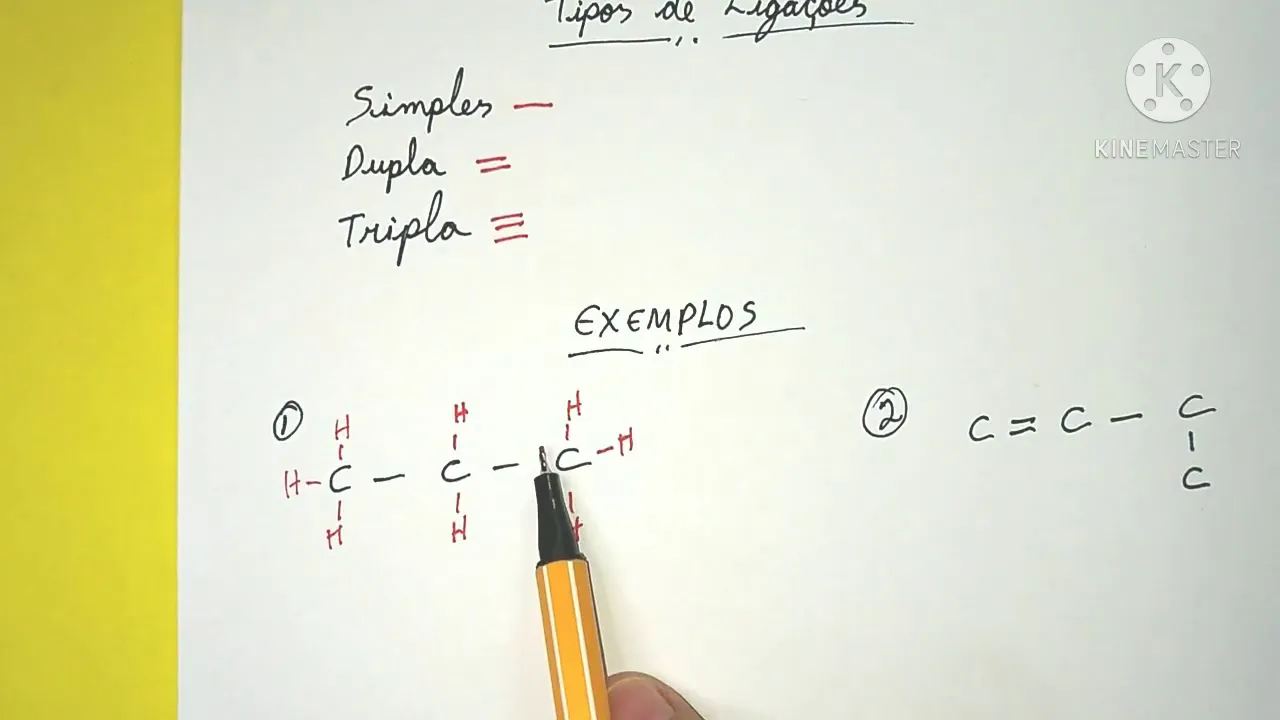 Tipos de Ligações
Simples —
Dupla =
Tripla ≡
EXEMPLOS
① H H H
H-C — C — C-H
H H H
② C = C — C
C
K
KINEMASTER